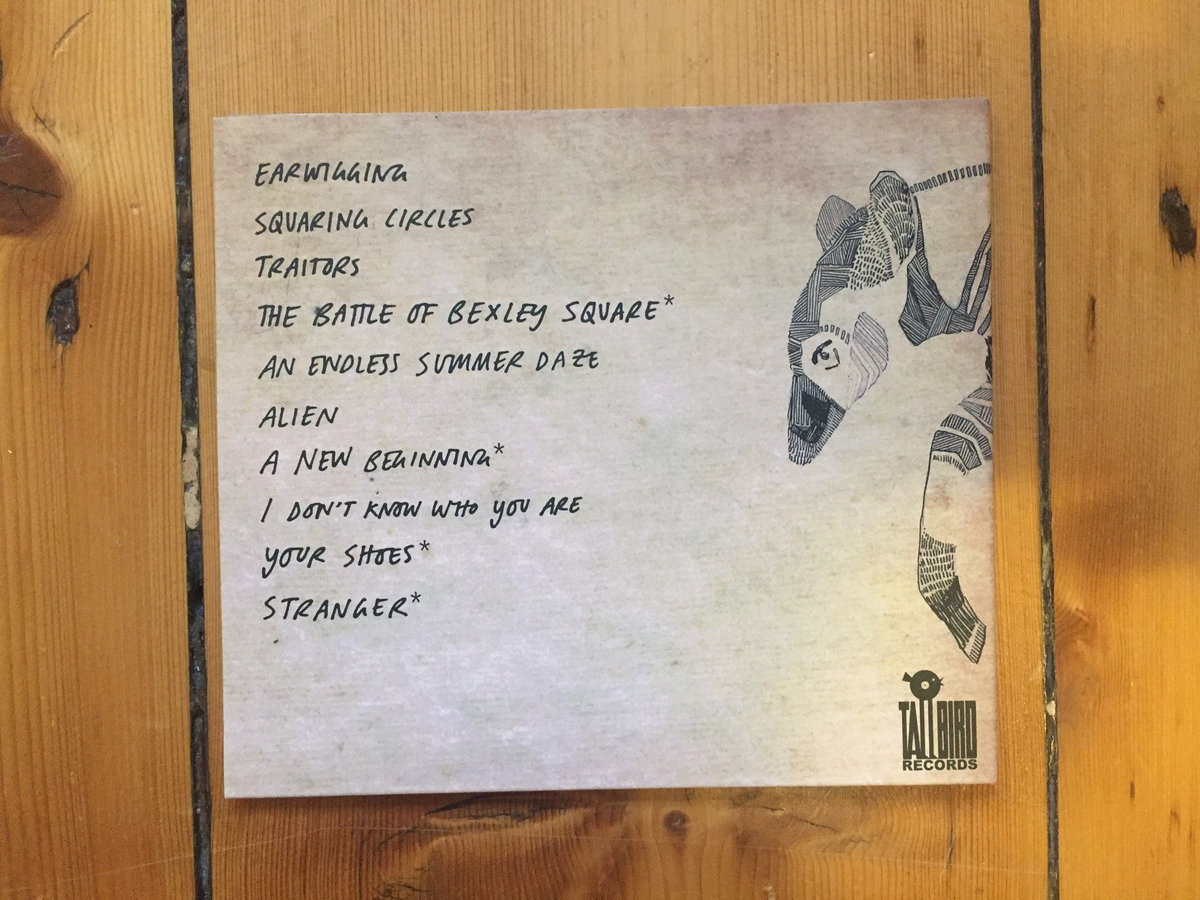 EARWIGGING
SQUARING CIRCLES
TRAITORS
THE BATTLE OF BEXLEY SQUARE*
AN ENDLESS SUMMER DAZE
ALIEN
A NEW BEGINNING*
I DON'T KNOW WHO YOU ARE
YOUR SHOES*
STRANGER*
TALLBIRD
RECORDS